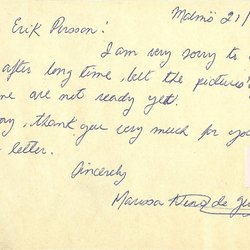 Malmö 21/
Erik Persson!
I am very sorry to
after long time, but the pictures
me are not ready yet.
ay, thank you very much for yo
letter.
Sincerely
Marussa de